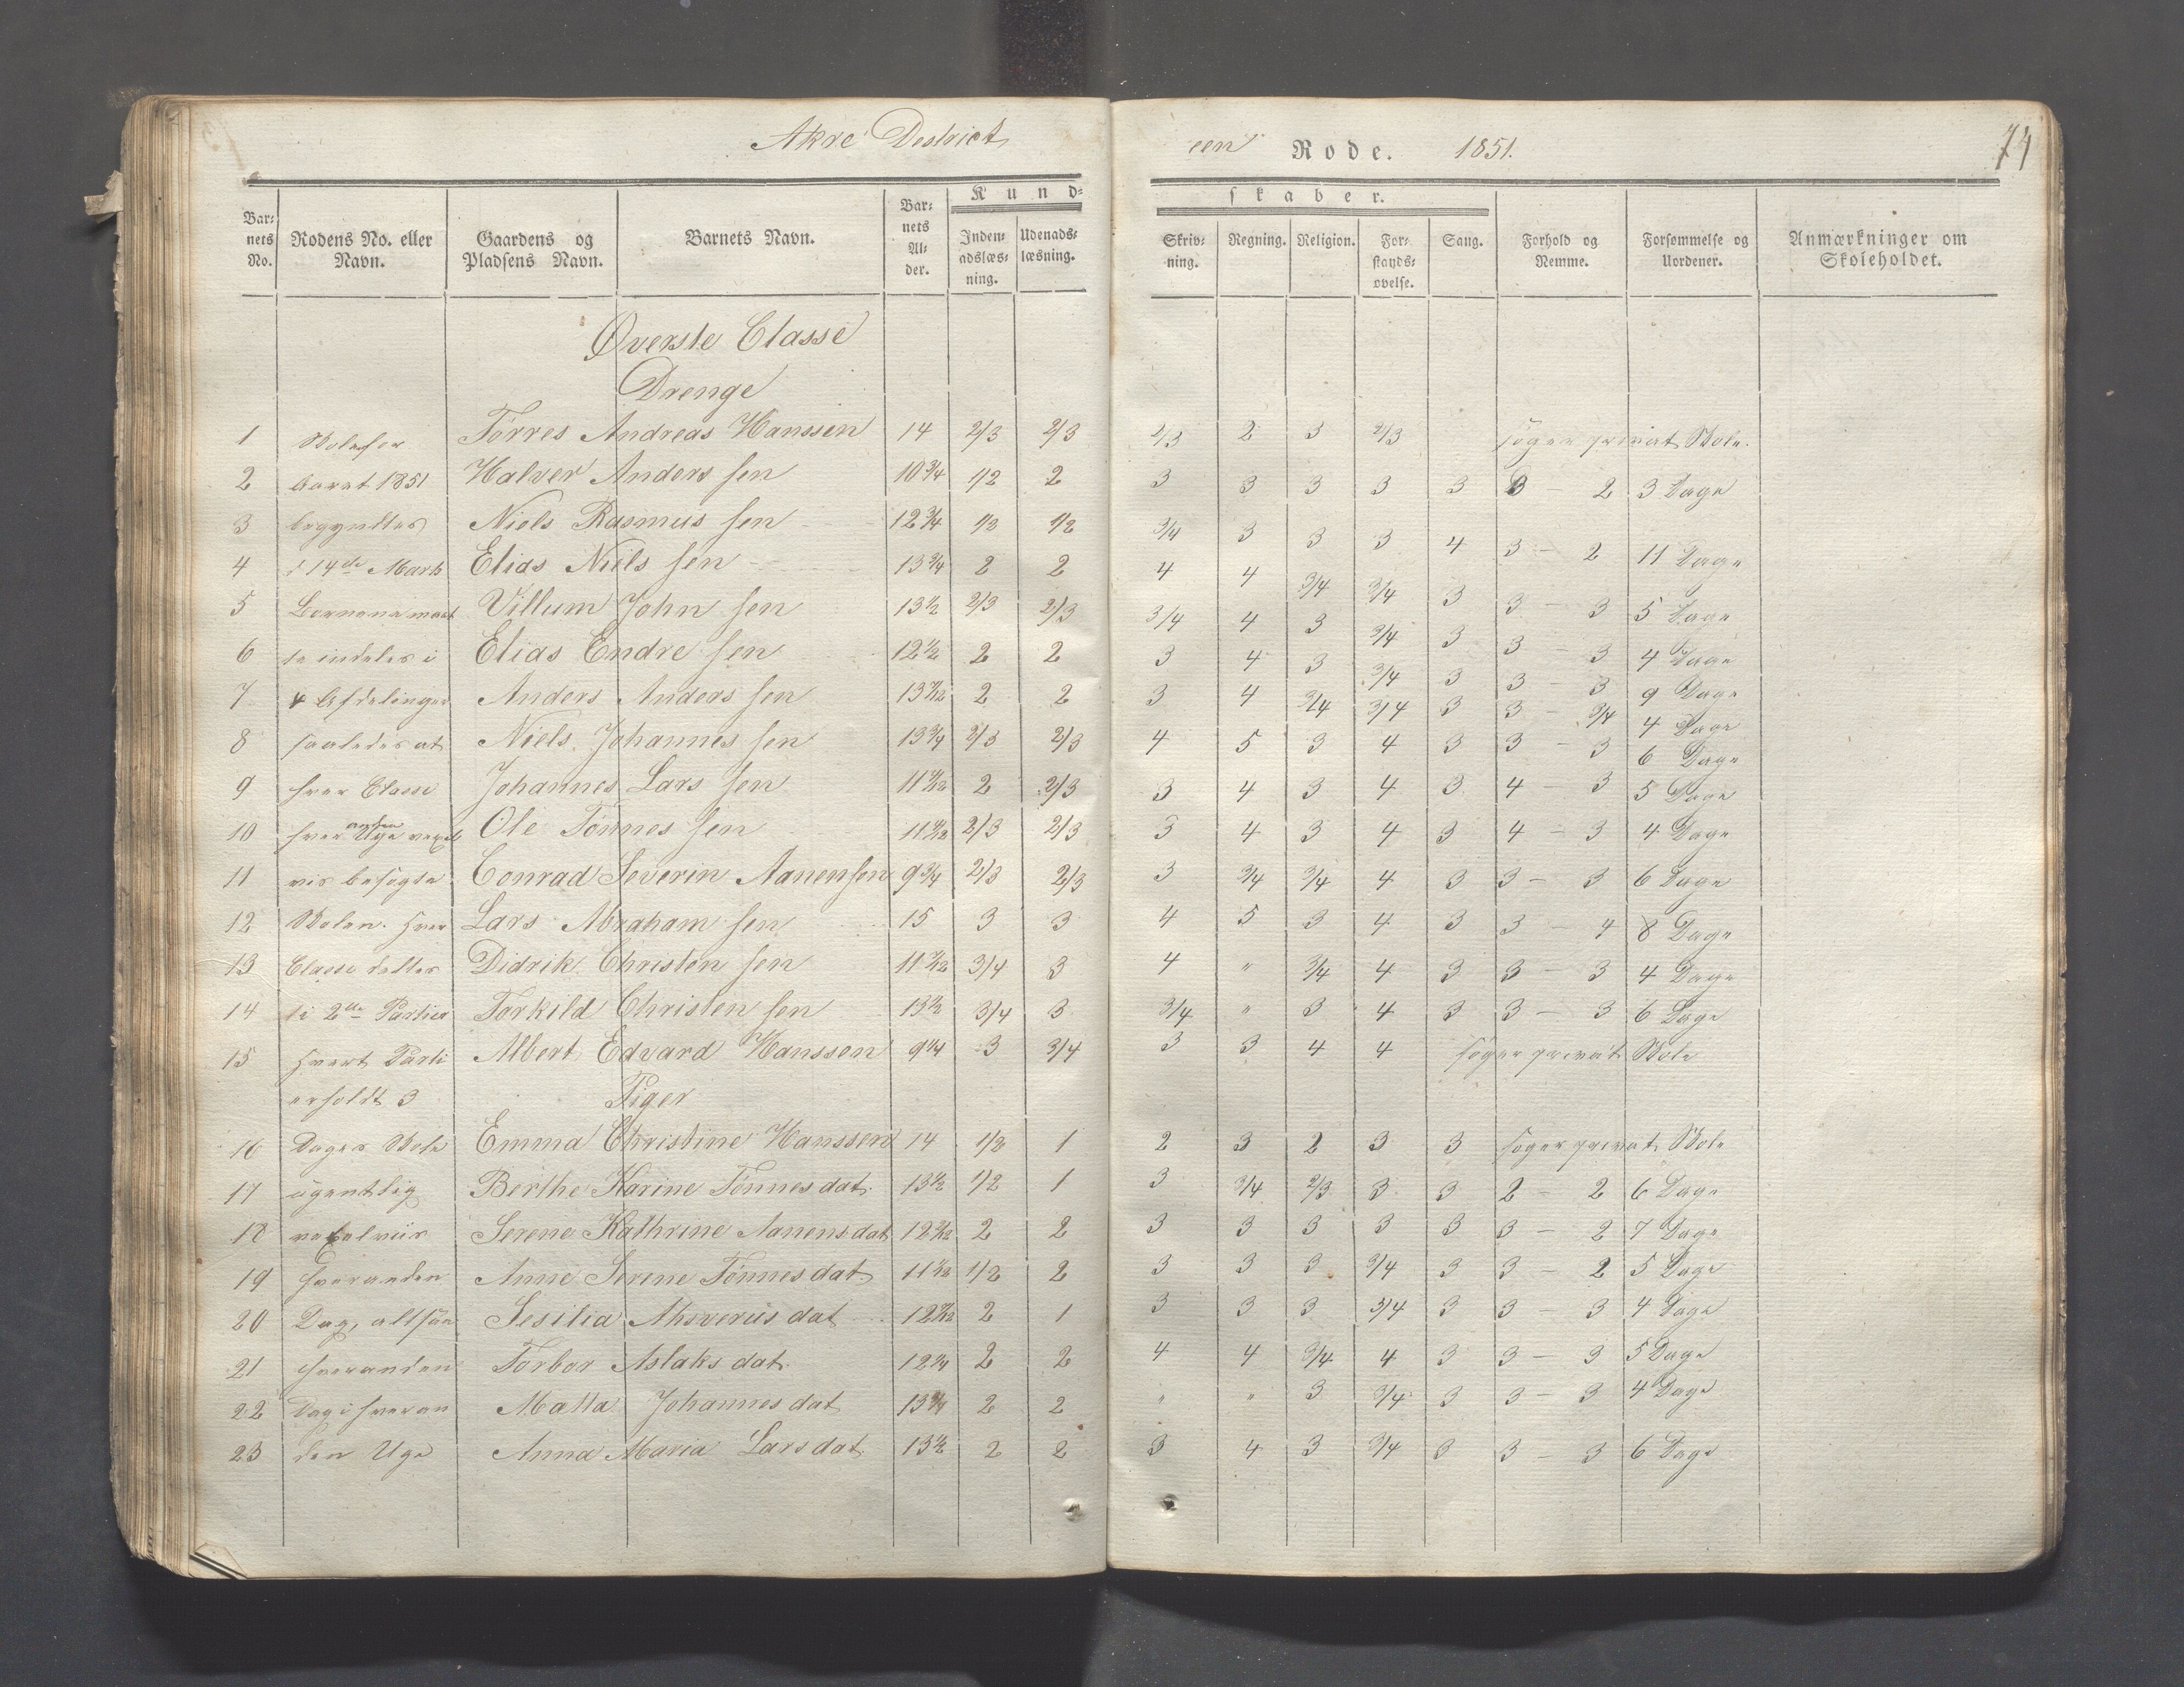 Akre District
een Rode. 1851.
74
Kund-
skaber.
Barnets No.
Rodens No. eller Navn.
Gaardens og Pladsens Navn.
Barnets Navn.
Barnets Alder.
Indenadslæsning.
Udenadslæsning.
Skrivning.
Regning.
Religion.
Forstandsøvelse.
Sang.
Forhold og Nemme.
Forsømmelse og Uordener.
Anmærkninger om Skoleholdet.
Øverste Classe
Drenge
1 Skole for Tørres Andreas Hanssen 14 2/3 2/3 2/3 2 3 2/3 søger privat Skole.
2 Aaret 1851 Halver Anders sen 10 3/4 1/2 2 3 3 3 3 3 3 – 2 3 Dage
3 begyndtes Niels Rasmus sen 12 3/4 1/2 1/2 3/4 3 3 3 4 3 – 2 11 Dage
4 d 14de Marts Elias Niels sen 13 3/4 2 2 4 4 3/4 3/4 3 3 – 3 5 Dage
5 Børnene maat Villum John sen 13 1/2 2/3 2/3 3/4 4 3 3/4 3 3 – 3 4 Dage
6 te indeles i Elias Endre sen 12 1/2 2 2 3 4 3 3/4 3 3 – 3 9 Dage
7 4 Afdelinger Anders Anders sen 13 7/12 2 2 3 4 3/4 3/4 3 3 – 3/4 4 Dage
8 saaledes at Niels Johannes sen 13 3/4 2/3 2/3 4 5 3 4 3 3 – 3 6 Dage
9 hver Classe Johannes Lars sen 2 2/3 3 4 3 4 3 4 – 3 5 Dage
10 hver anden Uge vexel Ole Tønnes sen 2/3 2/3 3 4 3 4 3 4 – 3 4 Dage
11 vis besøgte Conrad Severin Aanensen 9 3/4 2/3 2/3 3 3/4 3/4 4 3 3 – 3 6 Dage
12 Skolen. Hver Lars Abraham sen 15 3 3 4 5 3 4 3 3 – 4 8 Dage
13 Classe deltes Didrik Christen sen 11 7/12 3/4 3 4 " 3/4 4 3 3 – 3 4 Dage
14 i 2de Partier Torkild Christen sen 13 1/2 3/4 3 3/4 " 3 4 3 3 – 3 6 Dage
15 Hvert Parti Albert Edvard Hanssen 9 1/4 3 3/4 3 3 4 4 søger privat Skole
erholdt 3 Piger
16 Dages Skole Emma Christine Hanssen 14 1/2 1 2 3 2 3 3 søger privat Skole
17 ugentlig Berthe Karine Tønnes dat. 13 1/2 1/2 1 3 3/4 2/3 3 3 2 – 2 6 Dage
18 vexelviis Serene Kathrine Aanensdat 2 2 3 3 3 3 3 3 – 2 7 Dage
19 hveranden Anne Serene Tønnes dat 1/2 2 3 3 3 3/4 3 3 – 2 5 Dage
20 Dag, altsaa Sesilia Ahsverus dat 2 1 3 3 3 3/4 3 3 – 3 4 Dage
21 hveranden Torbor Aslaks dat. 12 1/4 2 2 4 4 3/4 4 3 3 – 3 5 Dage
22 Dag i hveran Malla Johannes dat 13 3/4 2 2 " " 3 3/4 3 3 – 3 4 Dage
23 den Uge Anna Maria Lars dat. 13 1/2 2 2 3 4 3 3/4 3 3 – 3 6 Dage